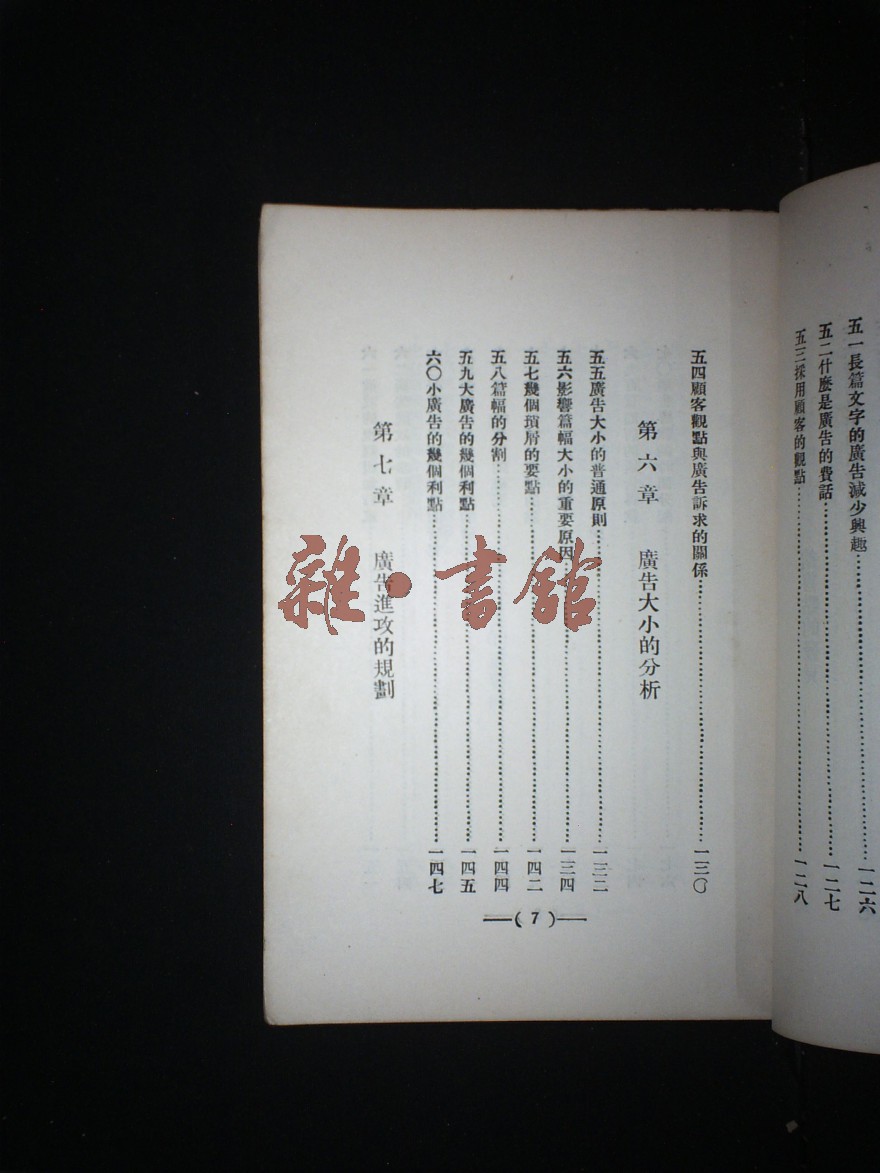 五一長篇文字的廣告減少興趣……一二六
五二什麼是廣告的費話……一二七
五三採用顧客的觀點……一二八
五四顧客觀點與廣告訴求的關係……一三〇
第六章 廣告大小的分析
五五廣告大小的普通原則……一三二
五六影響篇幅大小的重要原因……一三四
五七幾個瑣屑的要點……一四二
五八篇幅的分割……一四四
五九大廣告的幾個利點……一四五
六〇小廣告的幾個利點……一四七
第七章 廣告進攻的規劃
(7)
雜·書館